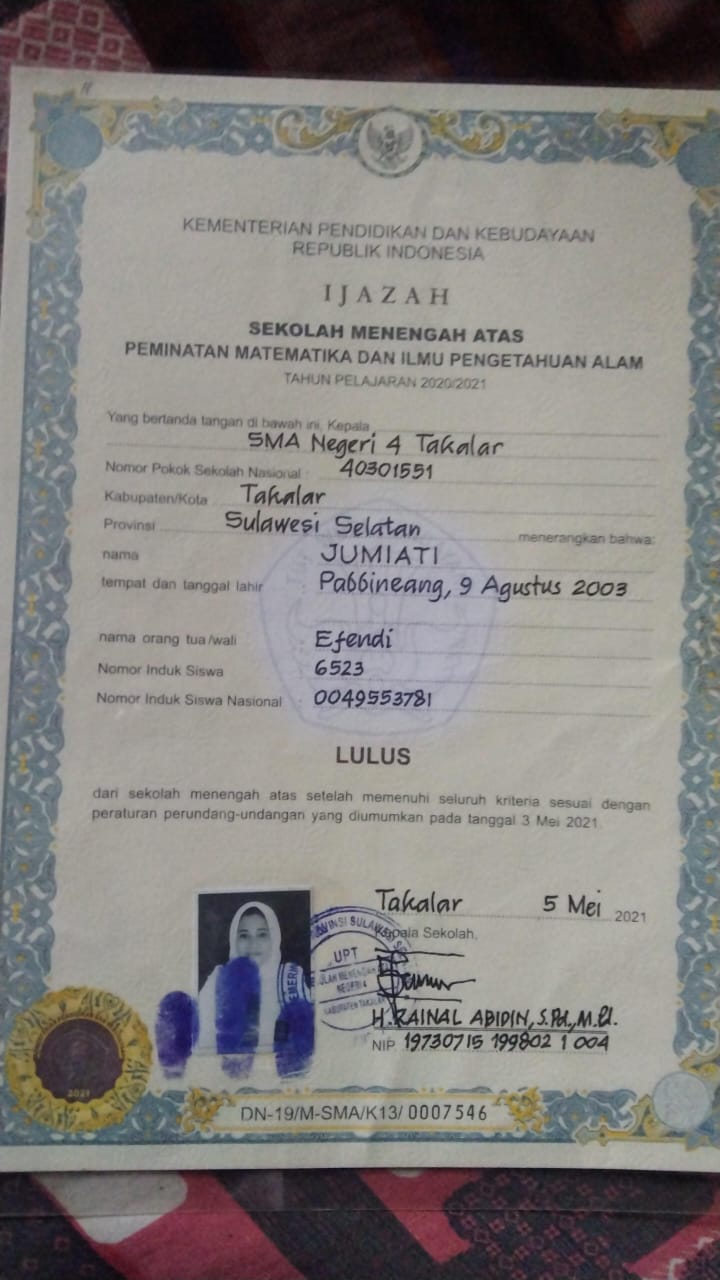 KEMENTERIAN PENDIDIKAN DAN KEBUDAYAAN
REPUBLIK INDONESIA
IJAZAH
SEKOLAH MENENGAH ATAS
PEMINATAN MATEMATIKA DAN ILMU PENGETAHUAN ALAM
TAHUN PELAJARAN 2020/2021
Yang bertanda tangan di bawah ini, Kepala
SMA Negeri 4 Takalar
Nomor Pokok Sekolah Nasional : 40301551
Kabupaten/Kota Takalar
Provinsi Sulawesi Selatan menerangkan bahwa:
nama : JUMIATI
tempat dan tanggal lahir : Pabbineang, 9 Agustus 2003
nama orang tua/wali : Efendi
Nomor Induk Siswa : 6523
Nomor Induk Siswa Nasional : 0049553781
LULUS
dari sekolah menengah atas setelah memenuhi seluruh kriteria sesuai dengan
peraturan perundang-undangan yang diumumkan pada tanggal 3 Mei 2021.
Takalar 5 Mei 2021
Kepala Sekolah,
UPT
NEGERI 4
KABUPATEN TAKALAR
H. RAINAL ABIDIN, S.Pd., M.Pd.
NIP 19730715 199802 1 004
2021
DN-19/M-SMA/K13/ 0007546